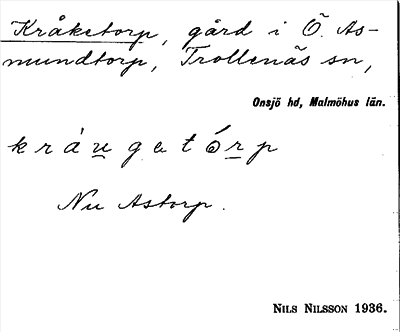 Kråketorp, gård i Ö. As-
mundtorp, Trollenäs sn,
Onsjö hd, Malmöhus län.
kráu̲getór̲p
Nu Astorp.
NILS NILSSON 1936.